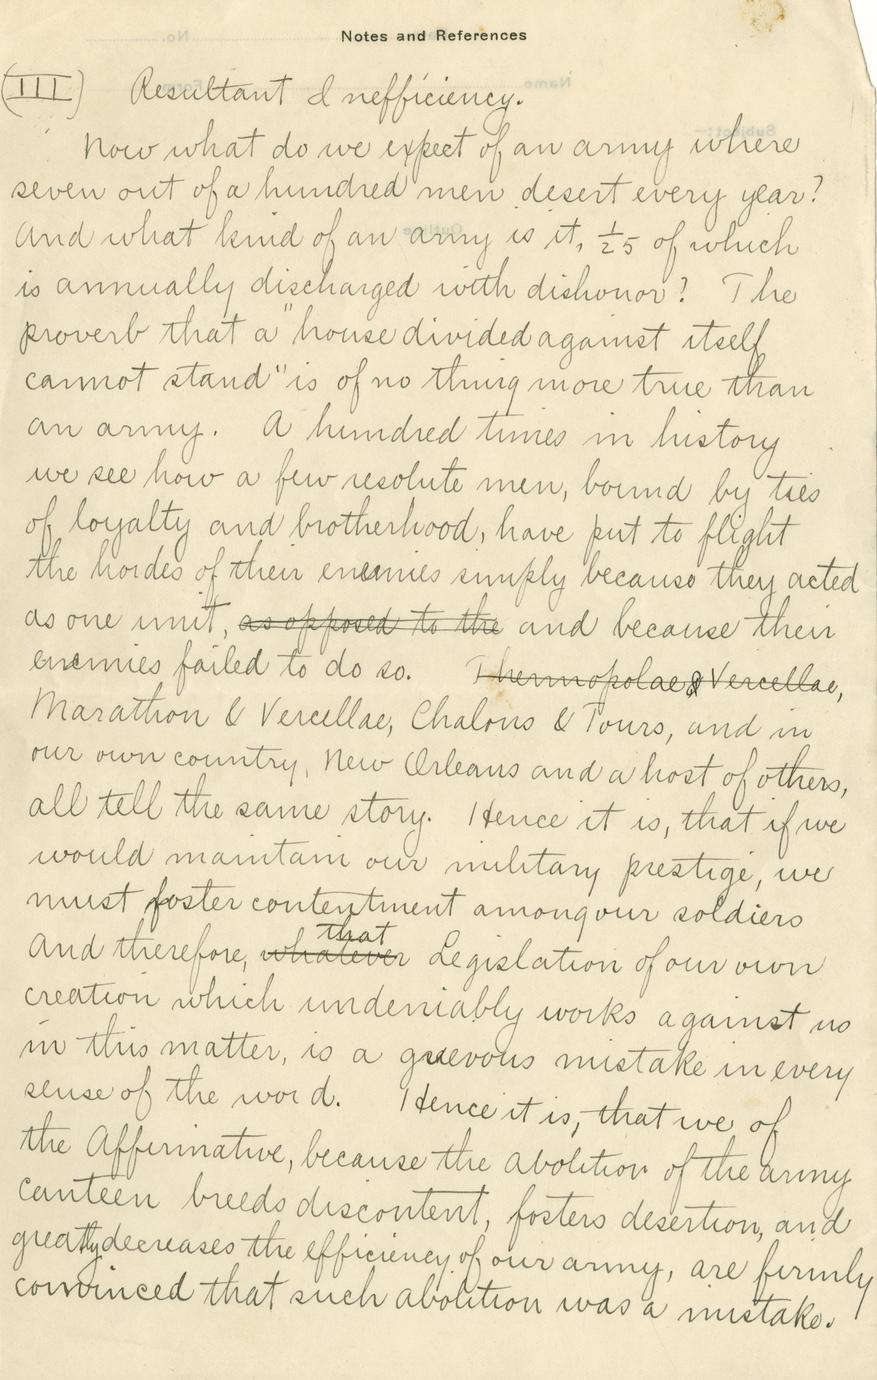 Notes and References
(III) Resultant Inefficiency.
Now what do we expect of an army where
seven out of a hundred men desert every year?
And what kind of an army is it, 1/25 of which
is annually discharged with dishonor? The
proverb that a "house divided against itself
cannot stand" is of no thing more true than
an army. A hundred times in history
we see how a few resolute men, bound by ties
of loyalty and brotherhood, have put to flight
the hordes of their enemies simply because they acted
as one unit, as opposed to the and because their
enemies failed to do so. Thermopolae & Vercellae,
Marathon & Vercellae, Chalons & Tours, and in
our own country, New Orleans and a host of others,
all tell the same story. Hence it is, that if we
would maintain our military prestige, we
must foster contentment among our soldiers
that
And therefore, whatever Legislation of our own
creation which undeniably works against us
in this matter, is a grievous mistake in every
sense of the word. Hence it is, that we of
the Affirmative, because the abolition of the army
canteen breeds discontent, fosters desertion, and
greatly decreases the efficiency of our army, are firmly
convinced that such abolition was a mistake.